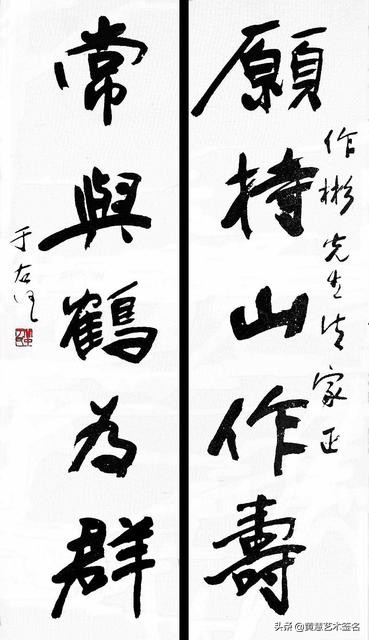 願持山作壽
作彬先生法家正
常與鶴為群
于右任
头条 @黄慧艺术签名